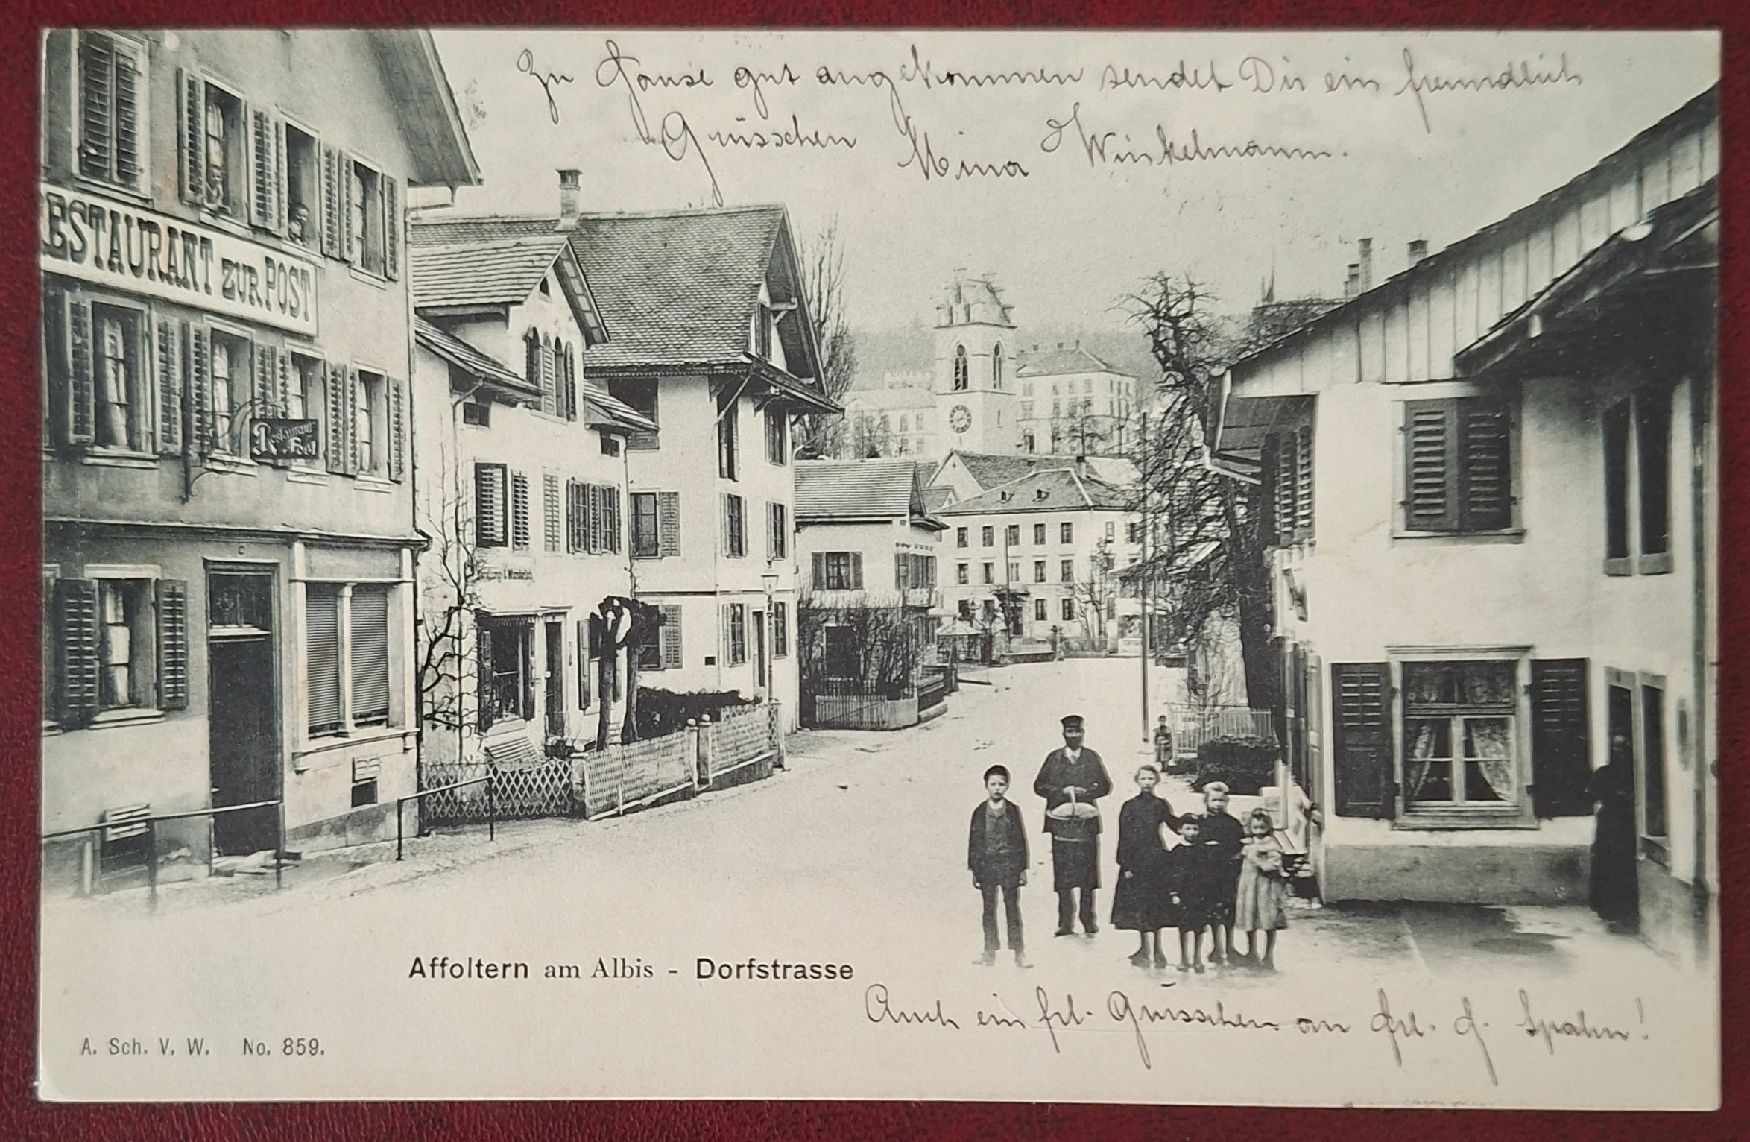 Zu Hause gut angekommen sendet Dir ein freundlich
Grüsschen Mina Winkelmann.
ESTAURANT ZUR POST
Restaurant
Post
Affoltern am Albis - Dorfstrasse
Auch ein frl. Grüsschen an Frl. J. Spahn!
A. Sch. V. W. No. 859.